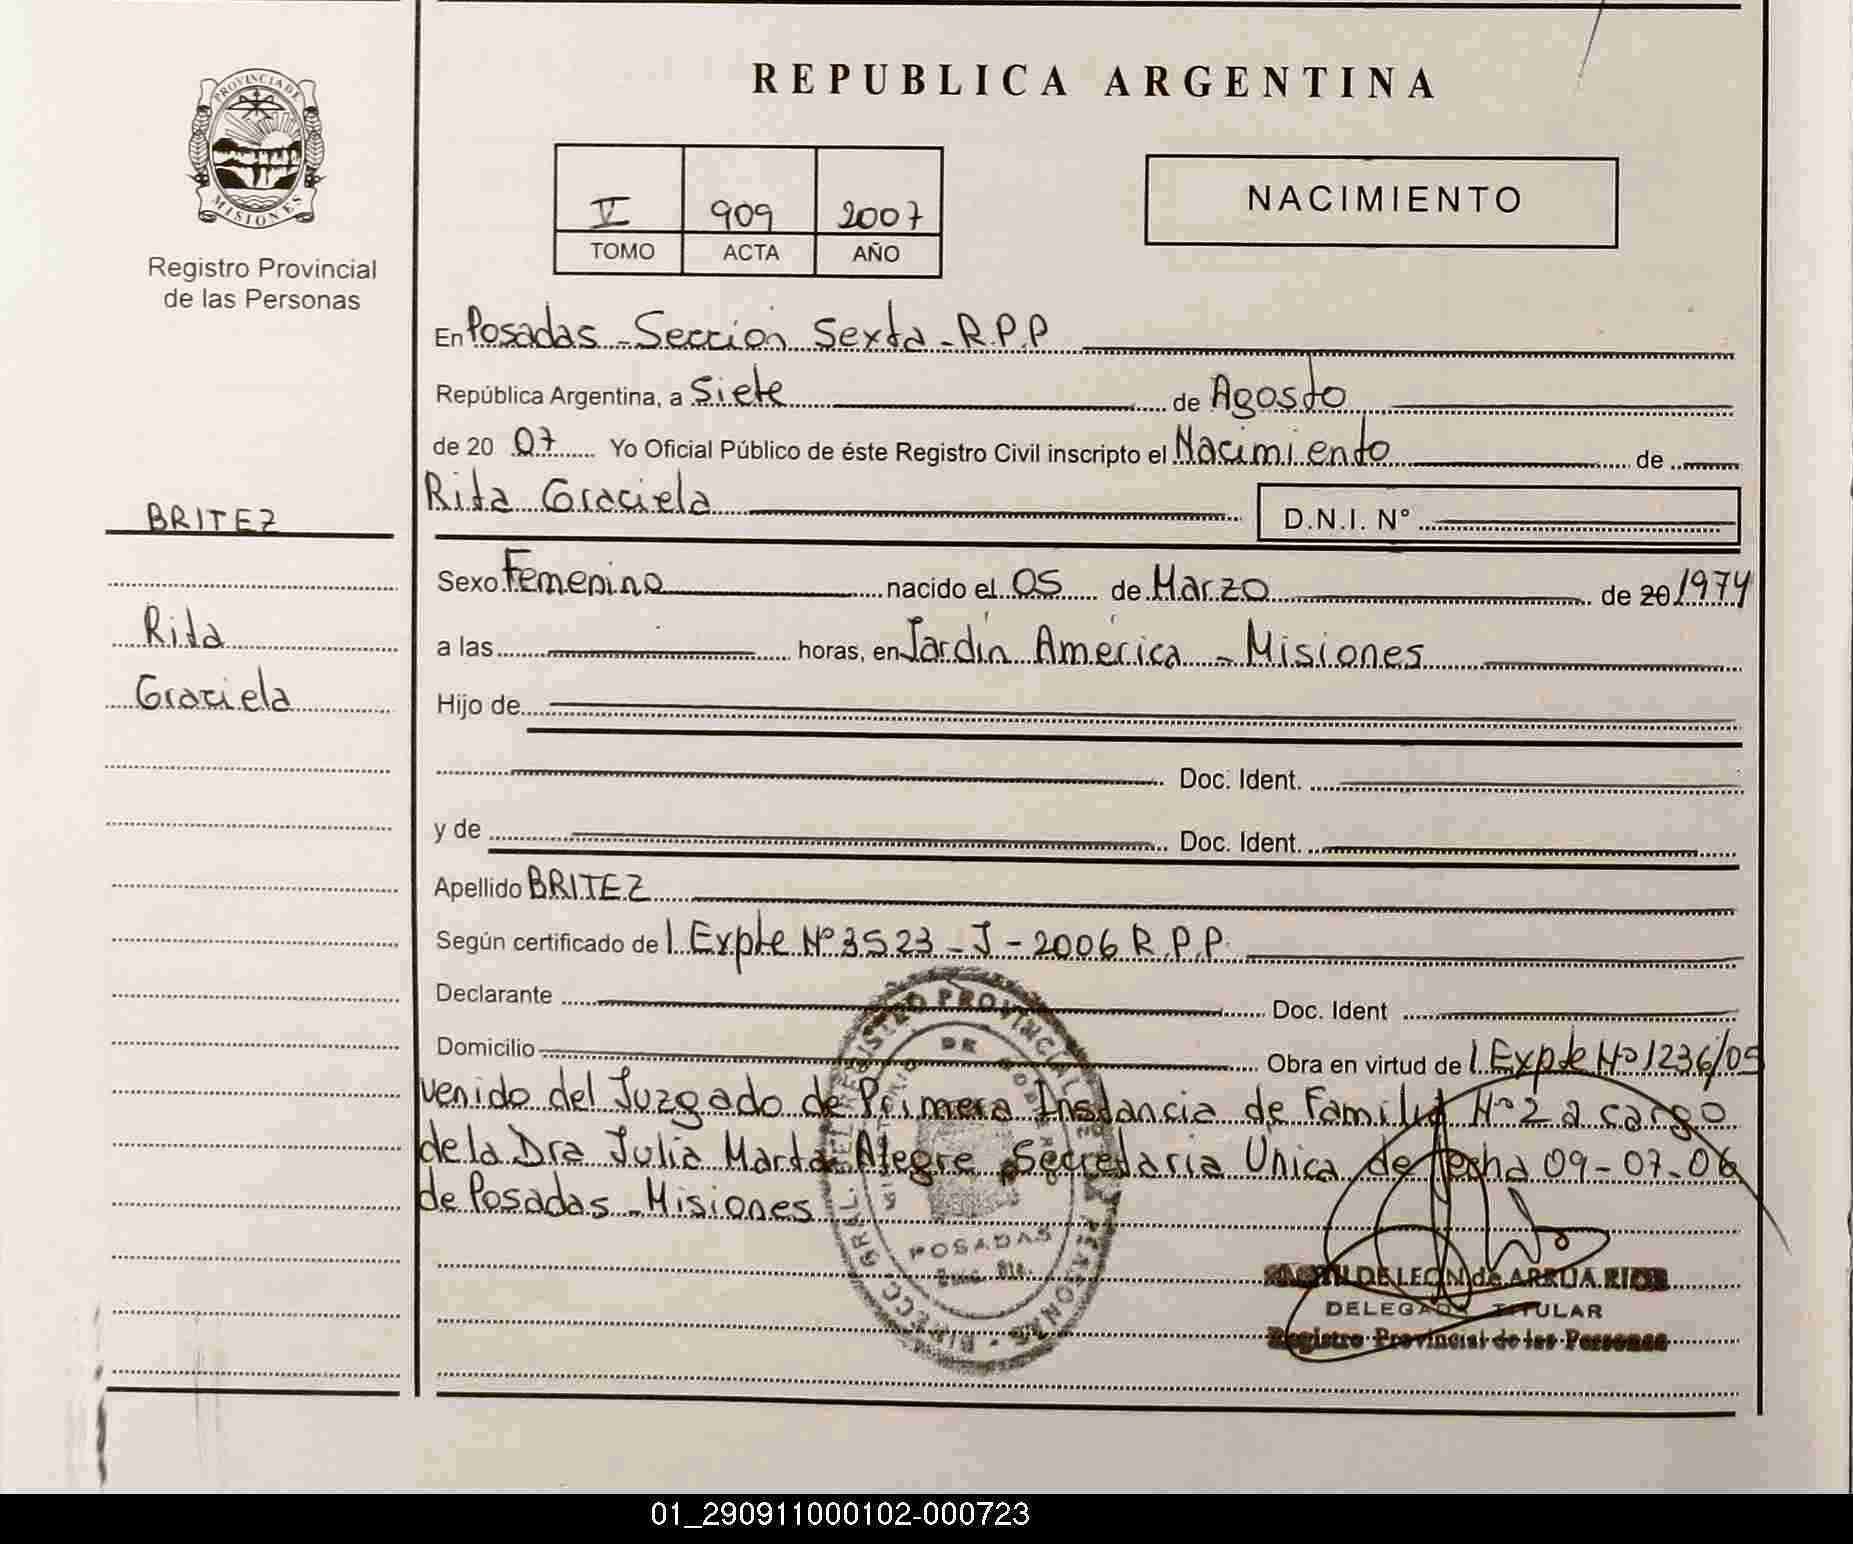 PROVINCIA DE
MISIONES
Registro Provincial
de las Personas
BRITEZ
Rita
Graciela
REPUBLICA ARGENTINA
V 909 2007
TOMO ACTA AÑO
NACIMIENTO
En Posadas - Sección Sexta - R.P.P
República Argentina, a Siete de Agosto
de 20 07 Yo Oficial Público de éste Registro Civil inscripto el Nacimiento de
Rita Graciela D.N.I. N°
Sexo Femenino nacido el 05 de Marzo de 20 1974
a las horas, en Jardín América - Misiones
Hijo de
Doc. Ident.
y de Doc. Ident.
Apellido BRITEZ
Según certificado de l Expte Nº 3523 - J - 2006 R.P.P.
Declarante Doc. Ident
Domicilio Obra en virtud de l Expte Nº 1236/05
venido del Juzgado de Primera Instancia de Familia Nº 2 a cargo
de la Dra Julia Marta Alegre Secretaria Unica de fecha 09-07-06
de Posadas - Misiones
REGISTRO PROVINCIAL DE LAS PERSONAS
POSADAS
DE LEON de ARRUA RIOS
DELEGADO TITULAR
Registro Provincial de las Personas
01_290911000102-000723